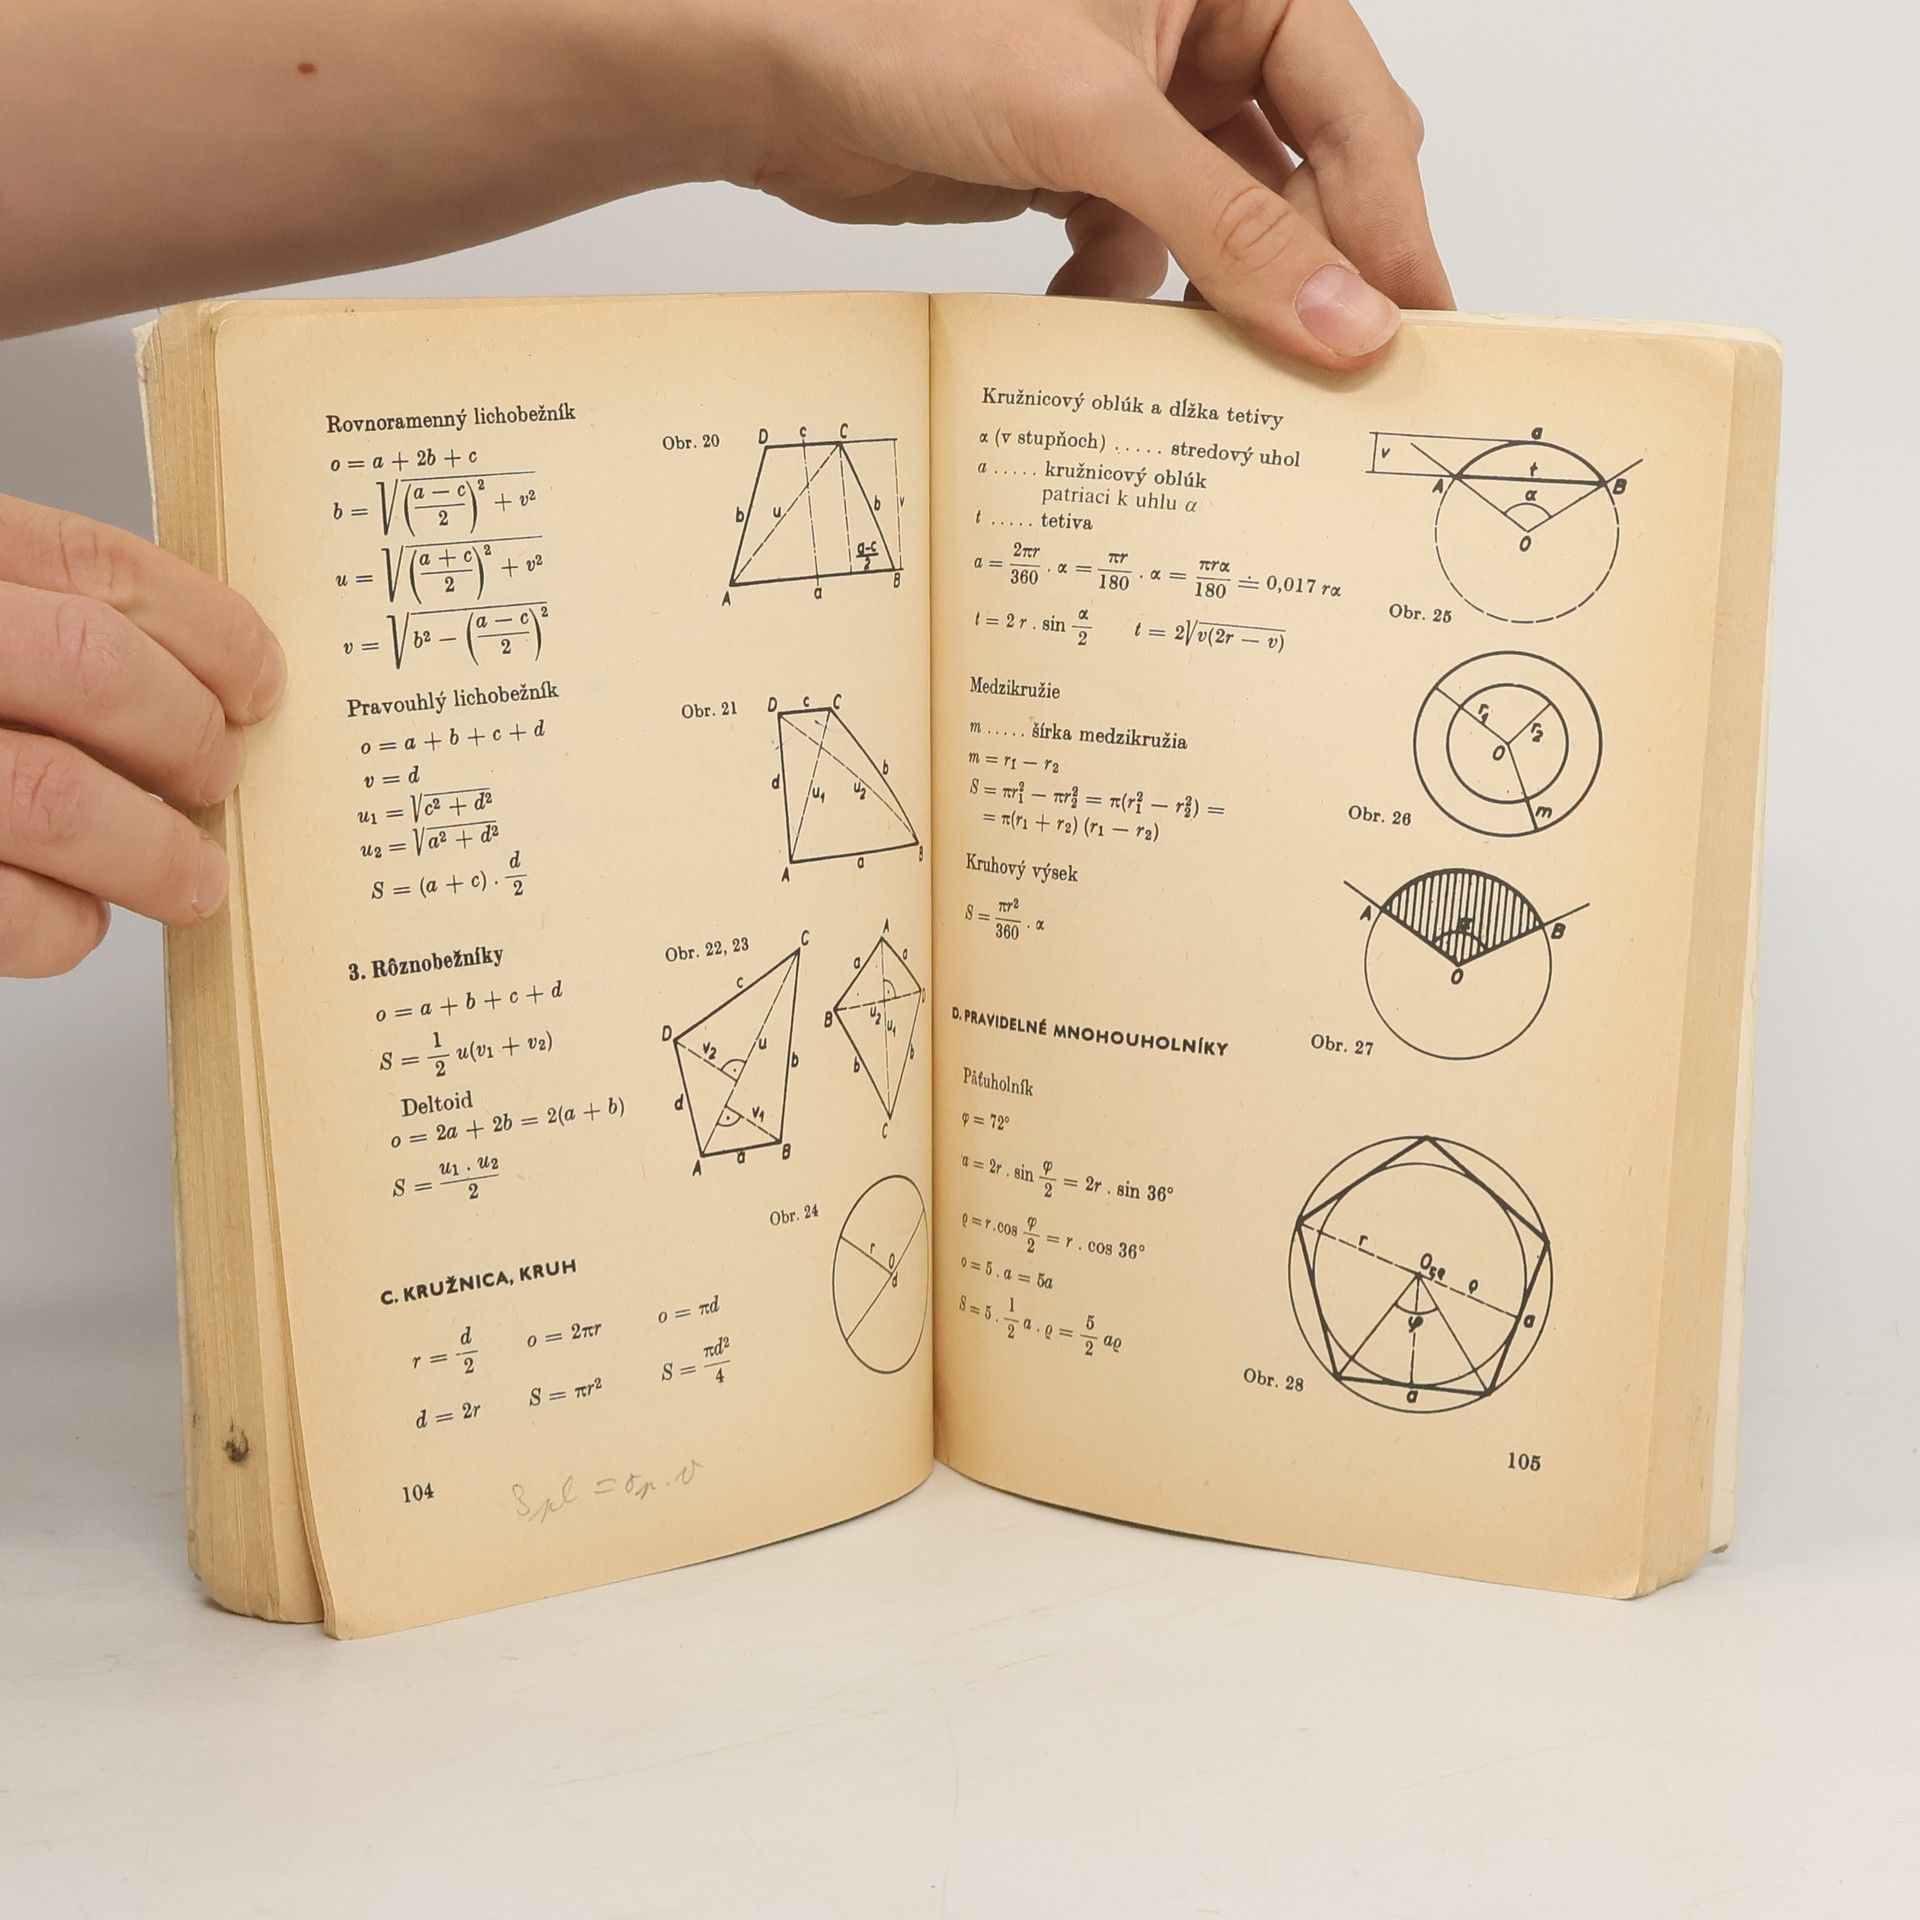 Rovnoramenný lichobežník
Obr. 20
o = a + 2b + c
b = √((a − c)/2)² + v²
u = √((a + c)/2)² + v²
v = √b² − ((a − c)/2)²
D c C
b u b v
(a-c)/2
A a B
Pravouhlý lichobežník
Obr. 21
o = a + b + c + d
v = d
u₁ = √c² + d²
u₂ = √a² + d²
S = (a + c) . d/2
D c C
d u₁ u₂ b
A a B
3. Rôznobežníky
Obr. 22, 23
o = a + b + c + d
S = 1/2 u(v₁ + v₂)
Deltoid
o = 2a + 2b = 2(a + b)
S = u₁ . u₂/2
C
c
D v₂ u b
d v₁
A a B
A
a a
B u₂ u₁ D
b b
C
Obr. 24
r O
d
C. KRUŽNICA, KRUH
r = d/2 o = 2πr o = πd
d = 2r S = πr² S = πd²/4
104
Kružnicový oblúk a dĺžka tetivy
α (v stupňoch) ..... stredový uhol
a ..... kružnicový oblúk
patriaci k uhlu α
t ..... tetiva
a = 2πr/360 . α = πr/180 . α = πrα/180 ≐ 0,017 rα
t = 2 r . sin α/2 t = 2√v(2r − v)
a
v t
A α B
O
Obr. 25
Medzikružie
m ..... šírka medzikružia
m = r₁ − r₂
S = πr₁² − πr₂² = π(r₁² − r₂²) =
= π(r₁ + r₂) (r₁ − r₂)
r₁ r₂
O
m
Obr. 26
Kruhový výsek
S = πr²/360 . α
A α B
O
Obr. 27
D. PRAVIDELNÉ MNOHOUHOLNÍKY
Päťuholník
φ = 72°
a = 2r . sin φ/2 = 2r . sin 36°
ϱ = r . cos φ/2 = r . cos 36°
o = 5 . a = 5a
S = 5 . 1/2 a . ϱ = 5/2 aϱ
r ϱ
φ a
a
Obr. 28
105